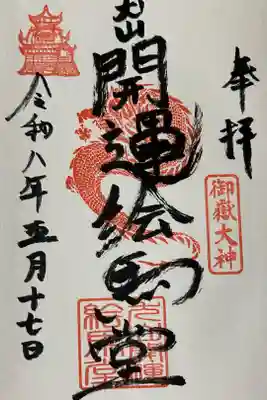 奉拝
御嶽大神
犬山
開運絵馬堂
令和八年五月十七日